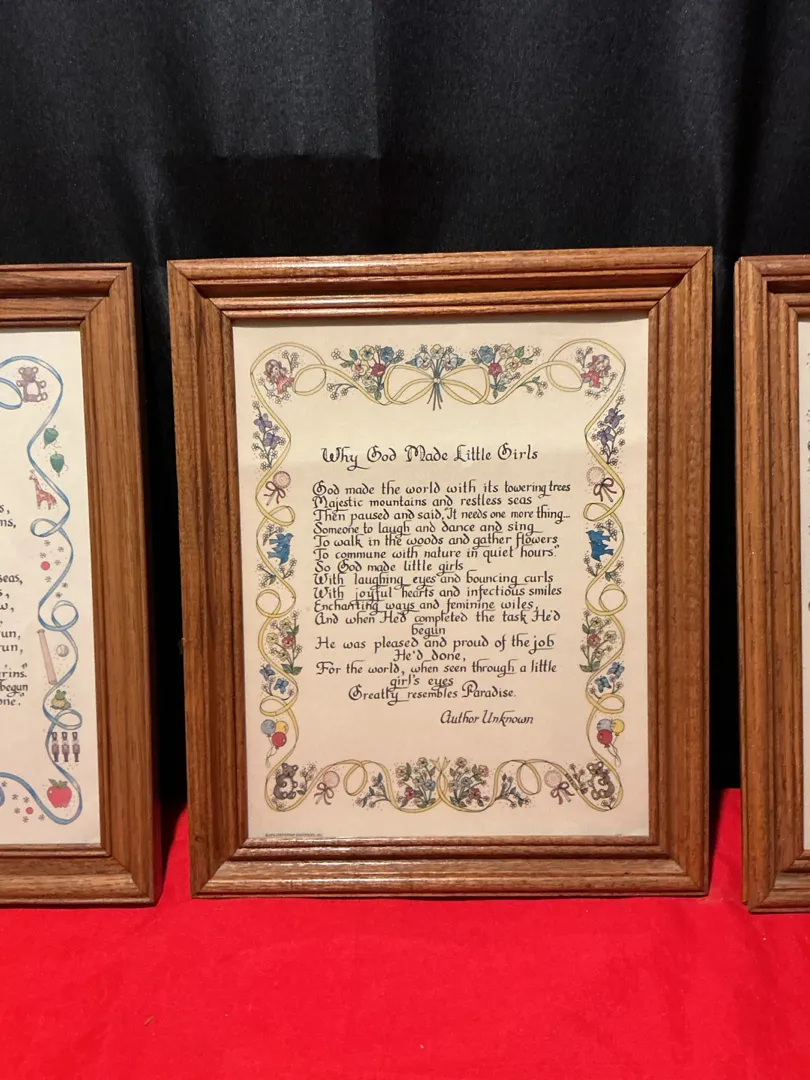 Why God Made Little Girls
God made the world with its towering trees
Majestic mountains and restless seas
Then paused and said, "It needs one more thing...
Someone to laugh and dance and sing
To walk in the woods and gather flowers
To commune with nature in quiet hours."
So God made little girls
With laughing eyes and bouncing curls
With joyful hearts and infectious smiles
Enchanting ways and feminine wiles,
And when He'd completed the task He'd
begun
He was pleased and proud of the job
He'd done,
For the world, when seen through a little
girl's eyes
Greatly resembles Paradise.
Author Unknown
seas,
begun